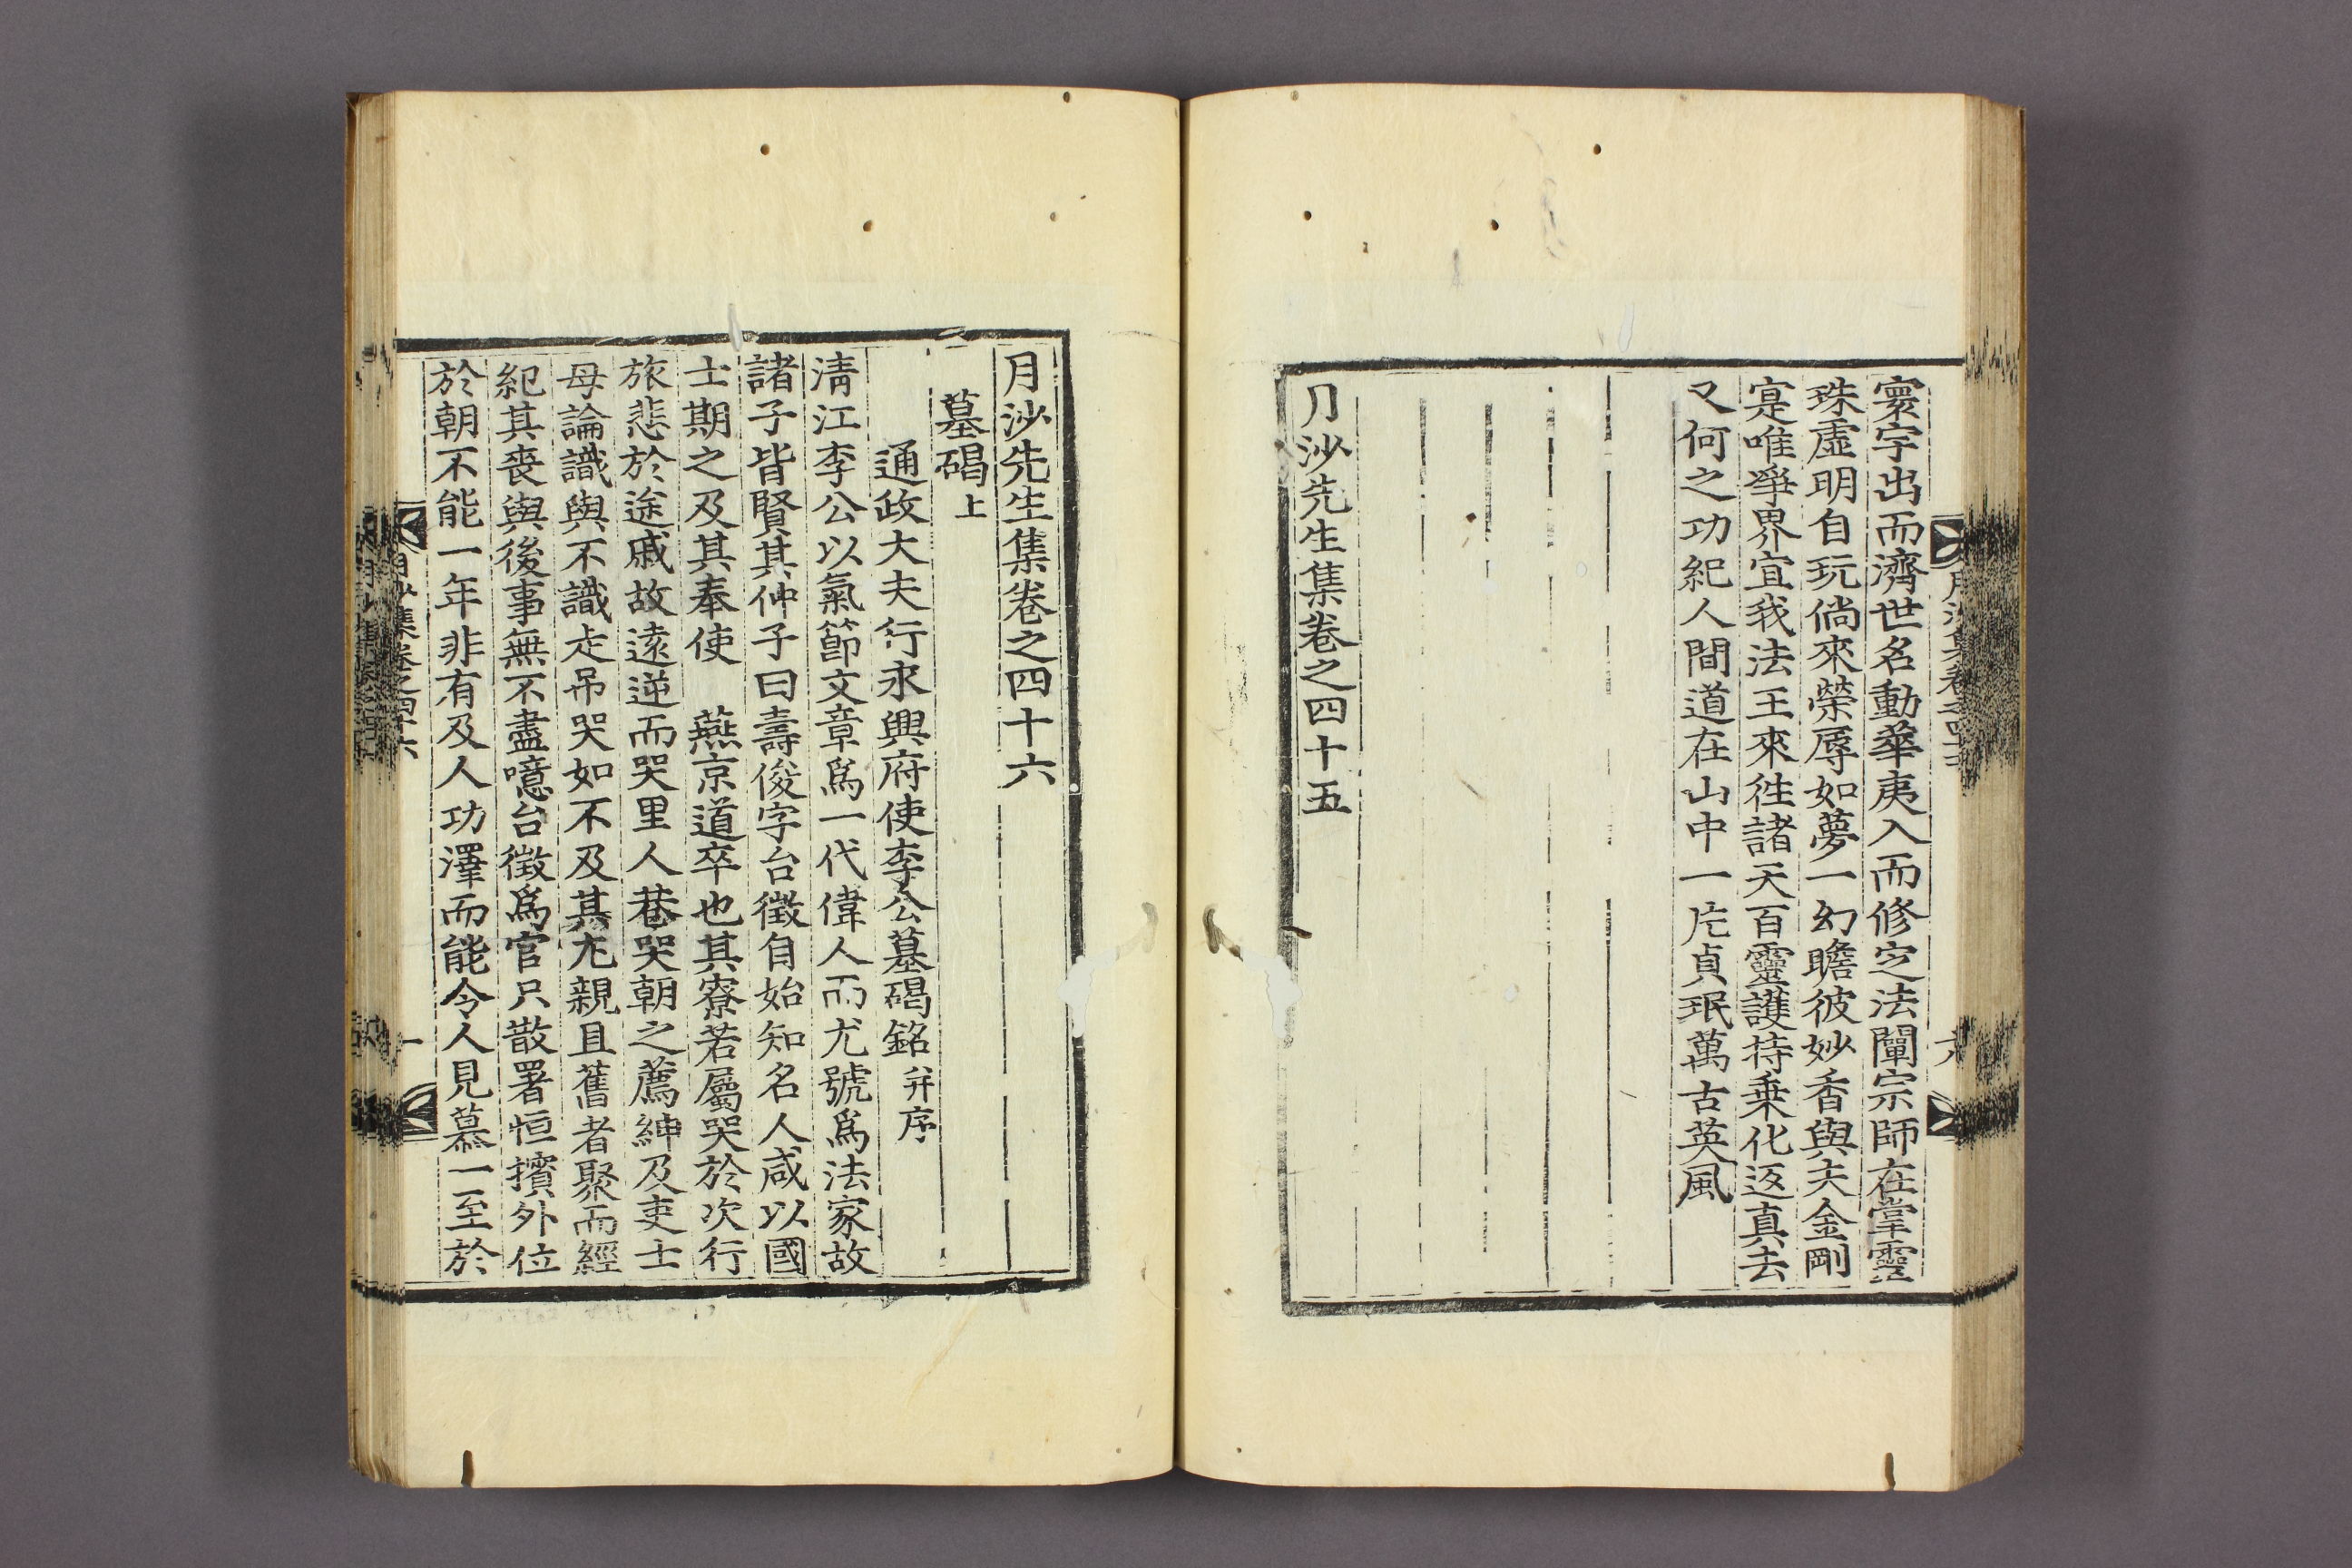 寰宇出而濟世名動華夷入而修定法闡宗師在掌靈
珠虛明自玩倘來榮辱如夢一幻瞻彼妙香與夫金剛
寔唯爭界宜我法王來徃諸天百靈護持乗化返真去
又何之功紀人間道在山中一片貞珉萬古英風
月沙先生集卷之四十五
月沙先生集卷之四十六
墓碣上
通政大夫行永興府使李公墓碣銘幷序
淸江李公以氣節文章爲一代偉人而尤號爲法家故
諸子皆賢其仲子曰壽俊字台徵自始知名人咸以國
士期之及其奉使 燕京道卒也其寮若屬哭於次行
旅悲於途戚故遠逆而哭里人巷哭朝之薦紳及吏士
母論識與不識走吊哭如不及其尤親且舊者聚而經
紀其喪與後事無不盡噫台徵爲官只散署恒擯外位
於朝不能一年非有及人功澤而能令人見慕一至於
月沙集卷之四十六
一